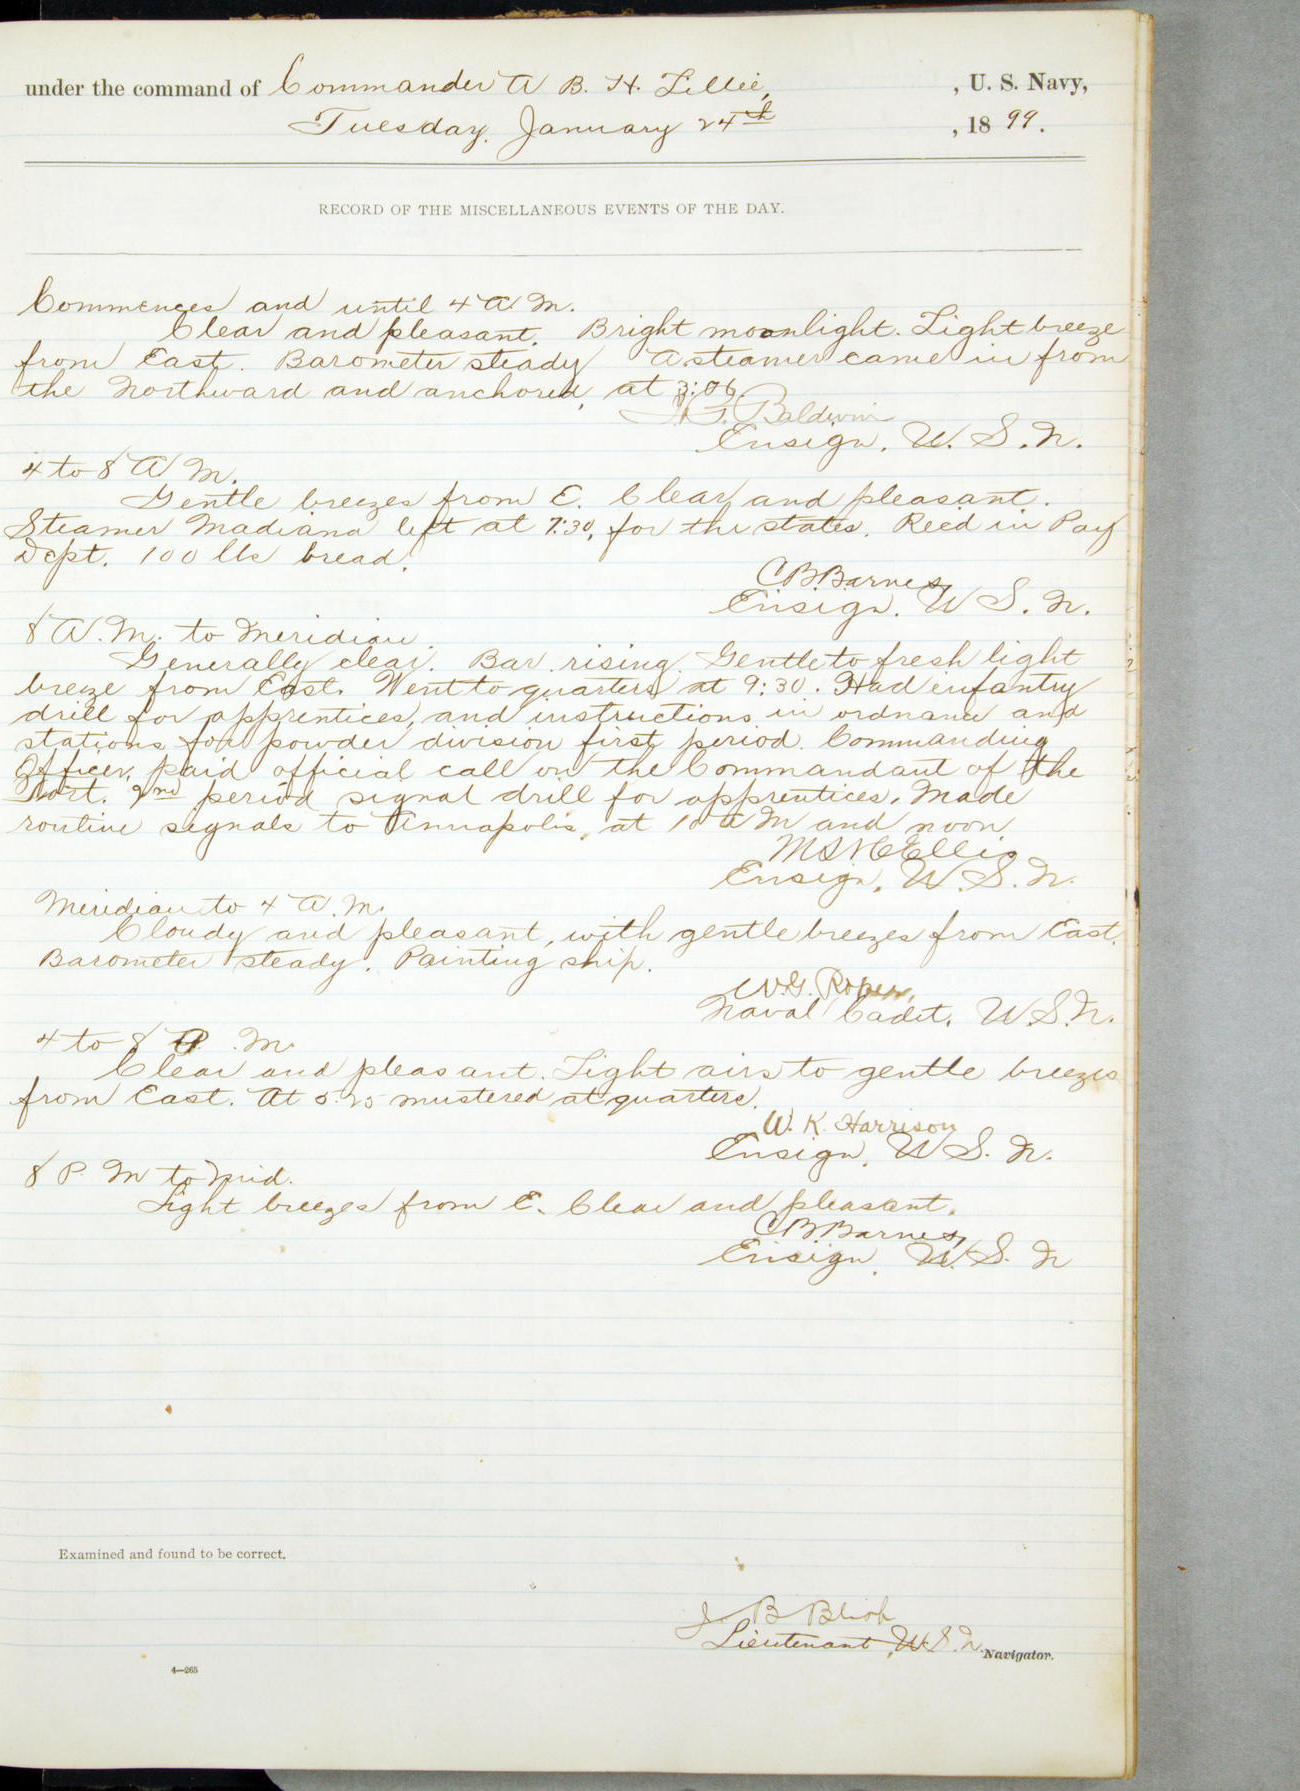 under the command of Commander A B. H. Lillie, , U. S. Navy,
Tuesday, January 24th , 1899.
RECORD OF THE MISCELLANEOUS EVENTS OF THE DAY.
Commences and until 4 A. M.
Clear and pleasant. Bright moonlight. Light breeze
from East. Barometer steady A steamer came in from
the Northward and anchored, at 3:06.
Baldwin
Ensign, U. S. N.
4 to 8 A M.
Gentle breezes from E. Clear and pleasant.
Steamer Madiana left at 7:30, for the states. Recd in Pay
Dept. 100 lbs bread.
C B. Barnes,
Ensign, U S. N.
8 A. M. to Meridian.
Generally clear. Bar. rising. Gentle to fresh light
breeze from East. Went to quarters at 9:30. Had infantry
drill for apprentices, and instructions in ordnance and
stations for powder division first period. Commanding
Officer, paid official call on the Commandant of the
Port. 2nd period signal drill for apprentices. Made
routine signals to Annapolis, at 10 A M and noon
Ellis
Ensign, U. S. N.
Meridian to 4 A. M.
Cloudy and pleasant, with gentle breezes from East.
Barometer steady. Painting ship.
W. G. Roper,
Naval Cadet, U. S. N.
4 to 8 P. M.
Clear and pleasant. Light airs to gentle breezes
from East. At 5:25 mustered at quarters.
W. K. Harrison
Ensign, U S. N.
8 P. M to Mid.
Light breezes from E. Clear and pleasant.
C B. Barnes,
Ensign, U. S. N
Examined and found to be correct.
J B Blish
Lieutenant, U. S. N. Navigator.
4—265